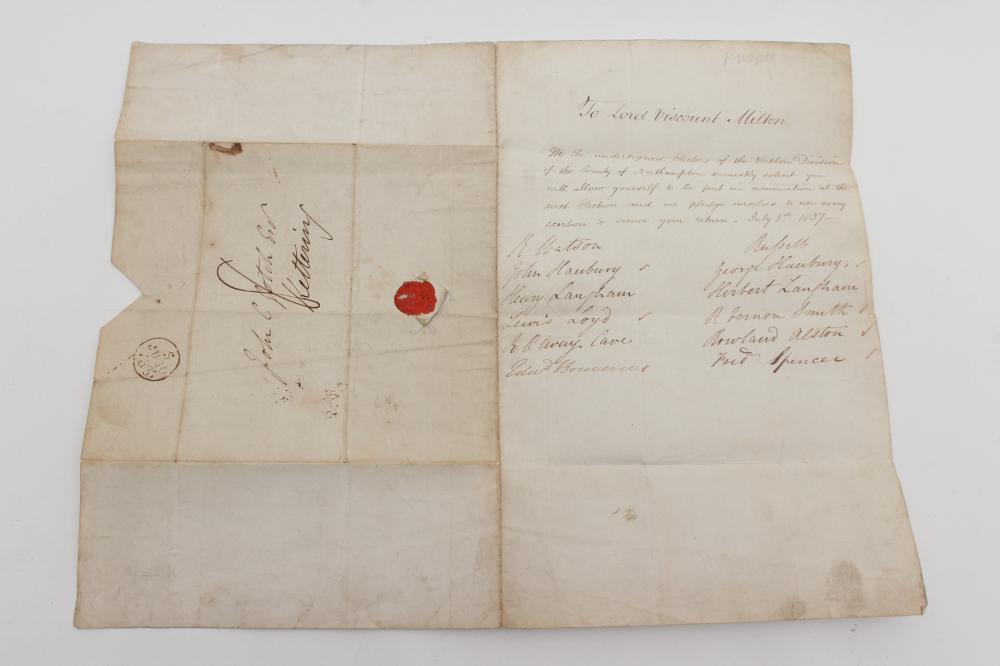 To Lord Viscount Milton
We the undersigned Electors of the Northern Division
of the County of Northampton earnestly solicit you
will allow yourself to be put in nomination at the
next Election and we pledge ourselves to use every
exertion to secure your return - July 1st 1837 -
R Watson
Russell
John Hanbury
George Hanbury
Henry Langham
Herbert Langham
Lewis Loyd
R Vernon Smith
Cave
Rowland Alston
Edwd Bouverie
Fred Spencer
John C Gotch Esqr
Kettering